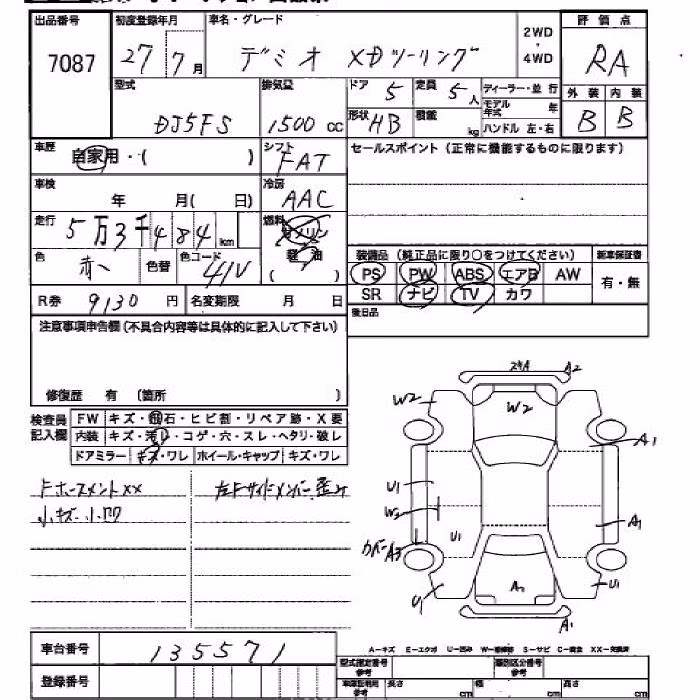 出品番号 初度登録年月 車名・グレード 2WD・4WD 評価点
7087 27 7月 デミオ XDツーリング RA
型式 排気量 ドア 5 定員 5人 ディーラー・並行 外装 内装
DJ5FS 1500cc 形状 HB 積載 kg モデル年式 年 ハンドル 左・右 B B
車歴 自家用・( ) シフト FAT セールスポイント(正常に機能するものに限ります)
車検 年 月( 日) 冷房 AAC
走行 5万3千484km 燃料 ガソリン
軽油
( )
色 赤 色替 色コード 41V
装備品(純正品に限り○をつけてください) 新車保証書
PS PW ABS エアB AW 有・無
SR ナビ TV カワ
R券 9130円 名変期限 月 日
後日品
注意事項申告欄(不具合内容等は具体的に記入して下さい)
修復歴 有 (箇所 )
検査員記入欄 FW キズ・飛石・ヒビ割・リペア跡・X要
内装 キズ・汚レ・コゲ・穴・スレ・ヘタリ・破レ
ドアミラー キズ・ワレ ホイール・キャップ キズ・ワレ
FホースメントXX 左Fサイドメンバー歪み
小キズ・小凹
A2
W2 W2
A1
U1
W2
U1 A1
カバーA3
U1 A2 U1
A1
車台番号 135571
A－キズ E－エクボ U－凹み W－補修跡 S－サビ C－腐食 XX－交換済
登録番号 型式指定番号 参考 類別区分番号 参考
車庫証明用 参考 長さ cm 幅 cm 高さ cm